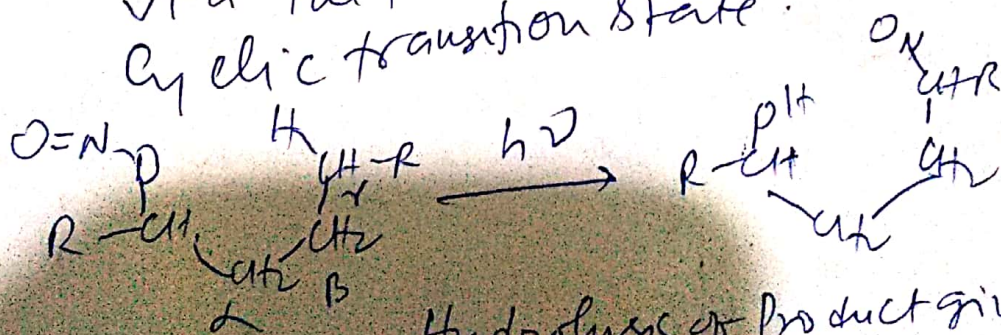 Cyclic transition state.
O=N-O H CH-R hν OH ON CH-R
R-CH CH2 CH2 γ R-CH CH2 CH2
α β
Hydrolysis of Product gi